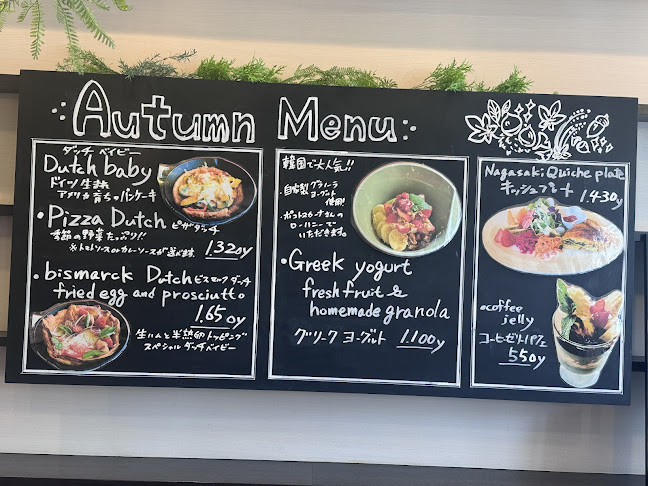 Autumn Menu
ダッチベイビー
Dutch baby
ドイツ生まれ
アメリカ育ちのパンケーキ
・Pizza Dutch ピザダッチ
季節の野菜たっぷり!!
※トマトソースorカレーソースが選べます
1320y
・bismarck Dutch ビスマルクダッチ
fried egg and prosciutto
1.650y
生ハムと半熟卵トッピング
スペシャルダッチベイビー
韓国で大人気!!
・自家製グラノーラ
ヨーグルト
使用!
さんの
いただきます。
・Greek yogurt
fresh fruit &
homemade granola
グリークヨーグルト 1.100y
Nagasaki Quiche plate
キッシュプレート 1.430y
coffee
jelly
コーヒーゼリーパフェ
550y